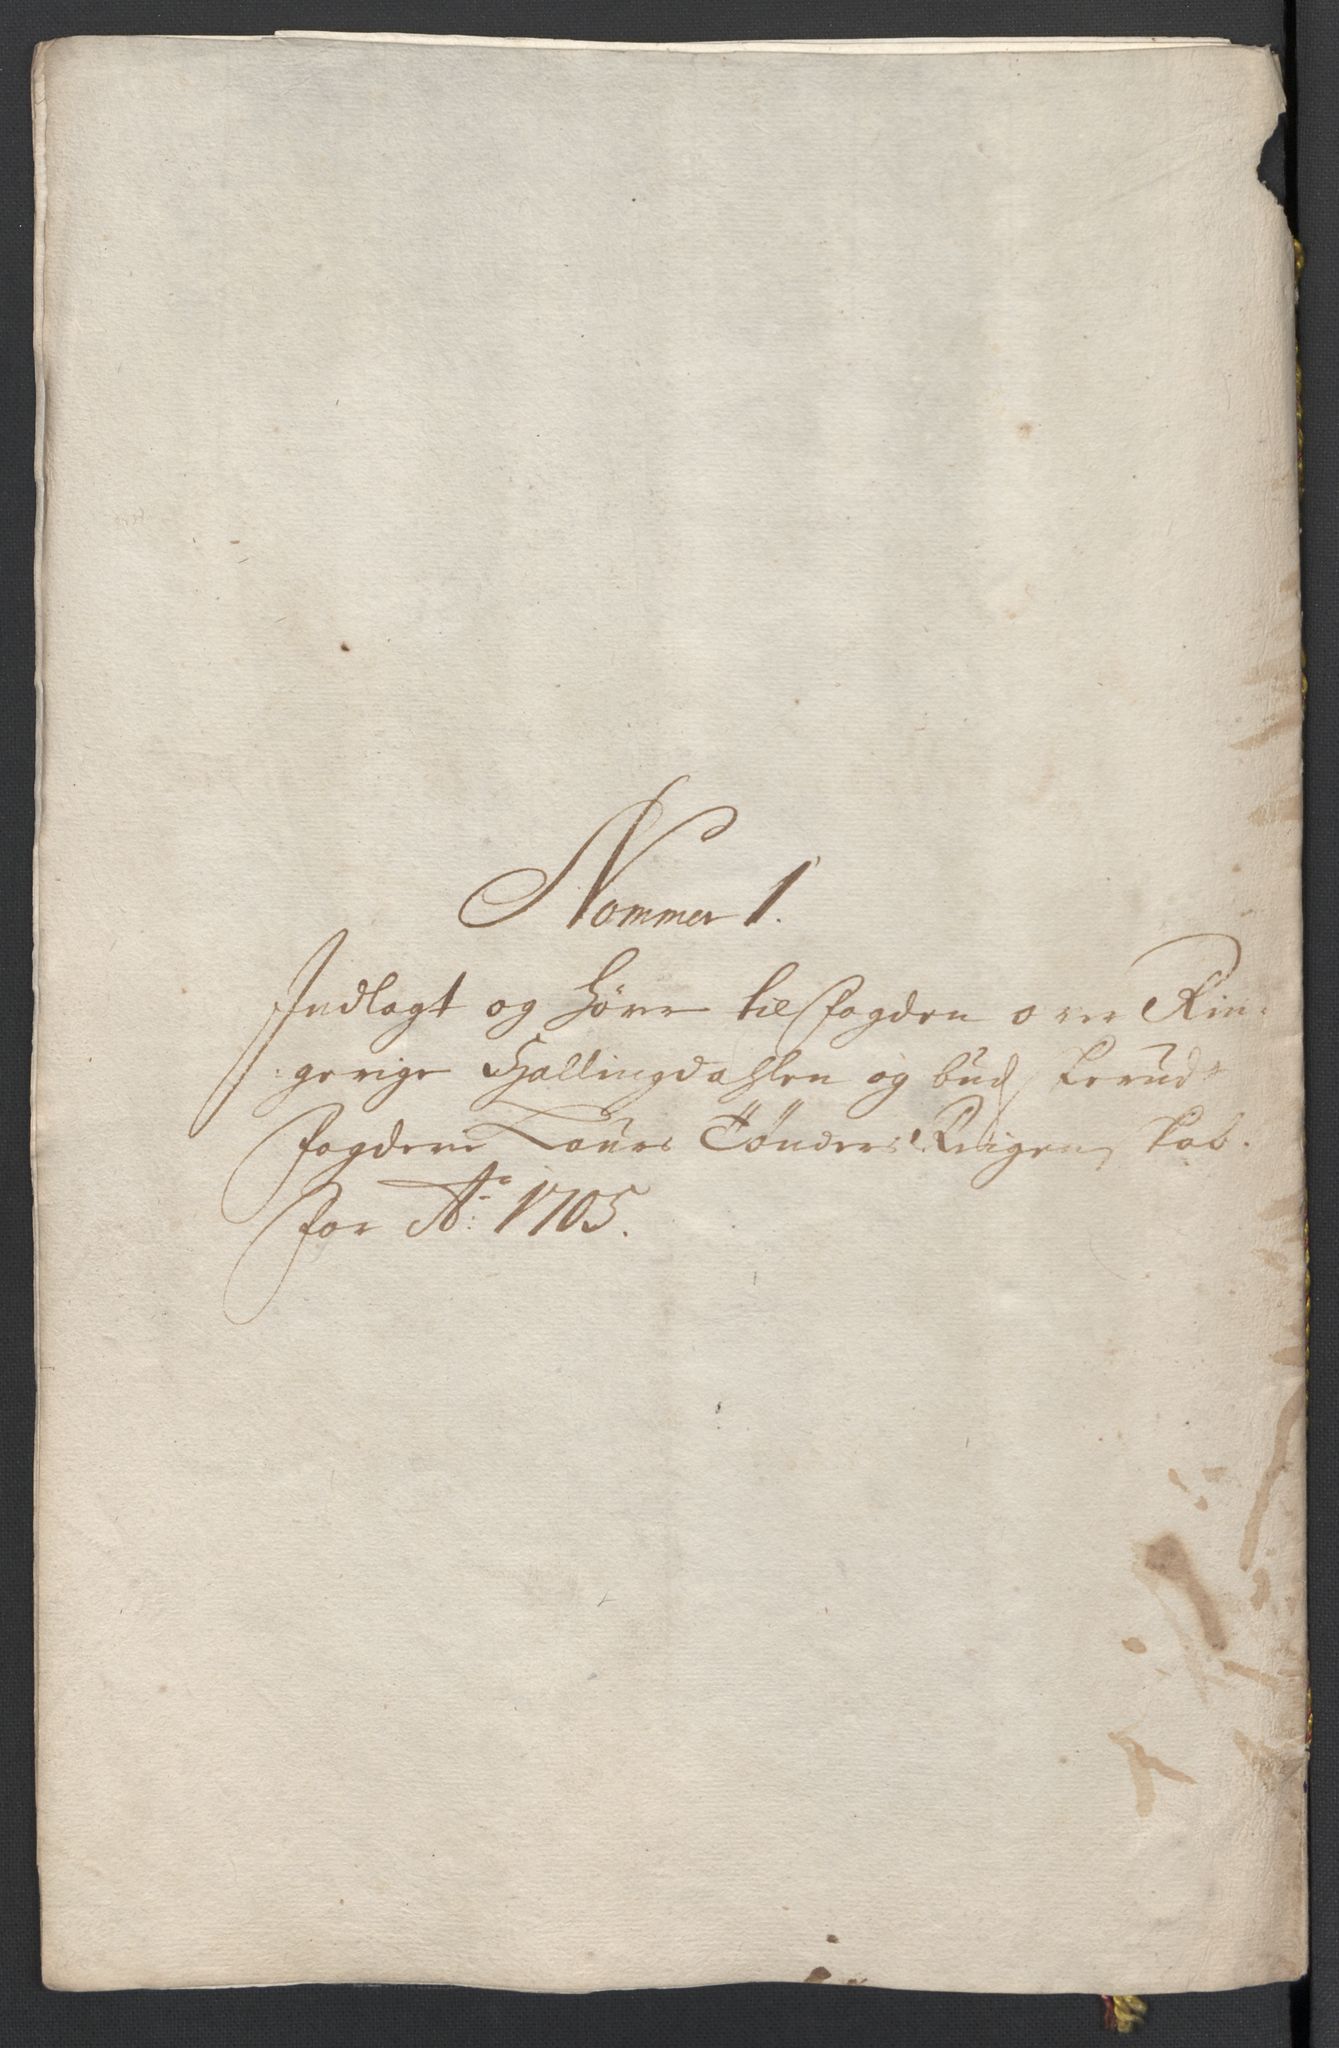 Nommer 1.
Indlagt og hörer til fogden over Rin-
gerige Hallingdahlen og budskeruds
fogderie Laurs Tönders Reigenskab.
for Aº: 1705.